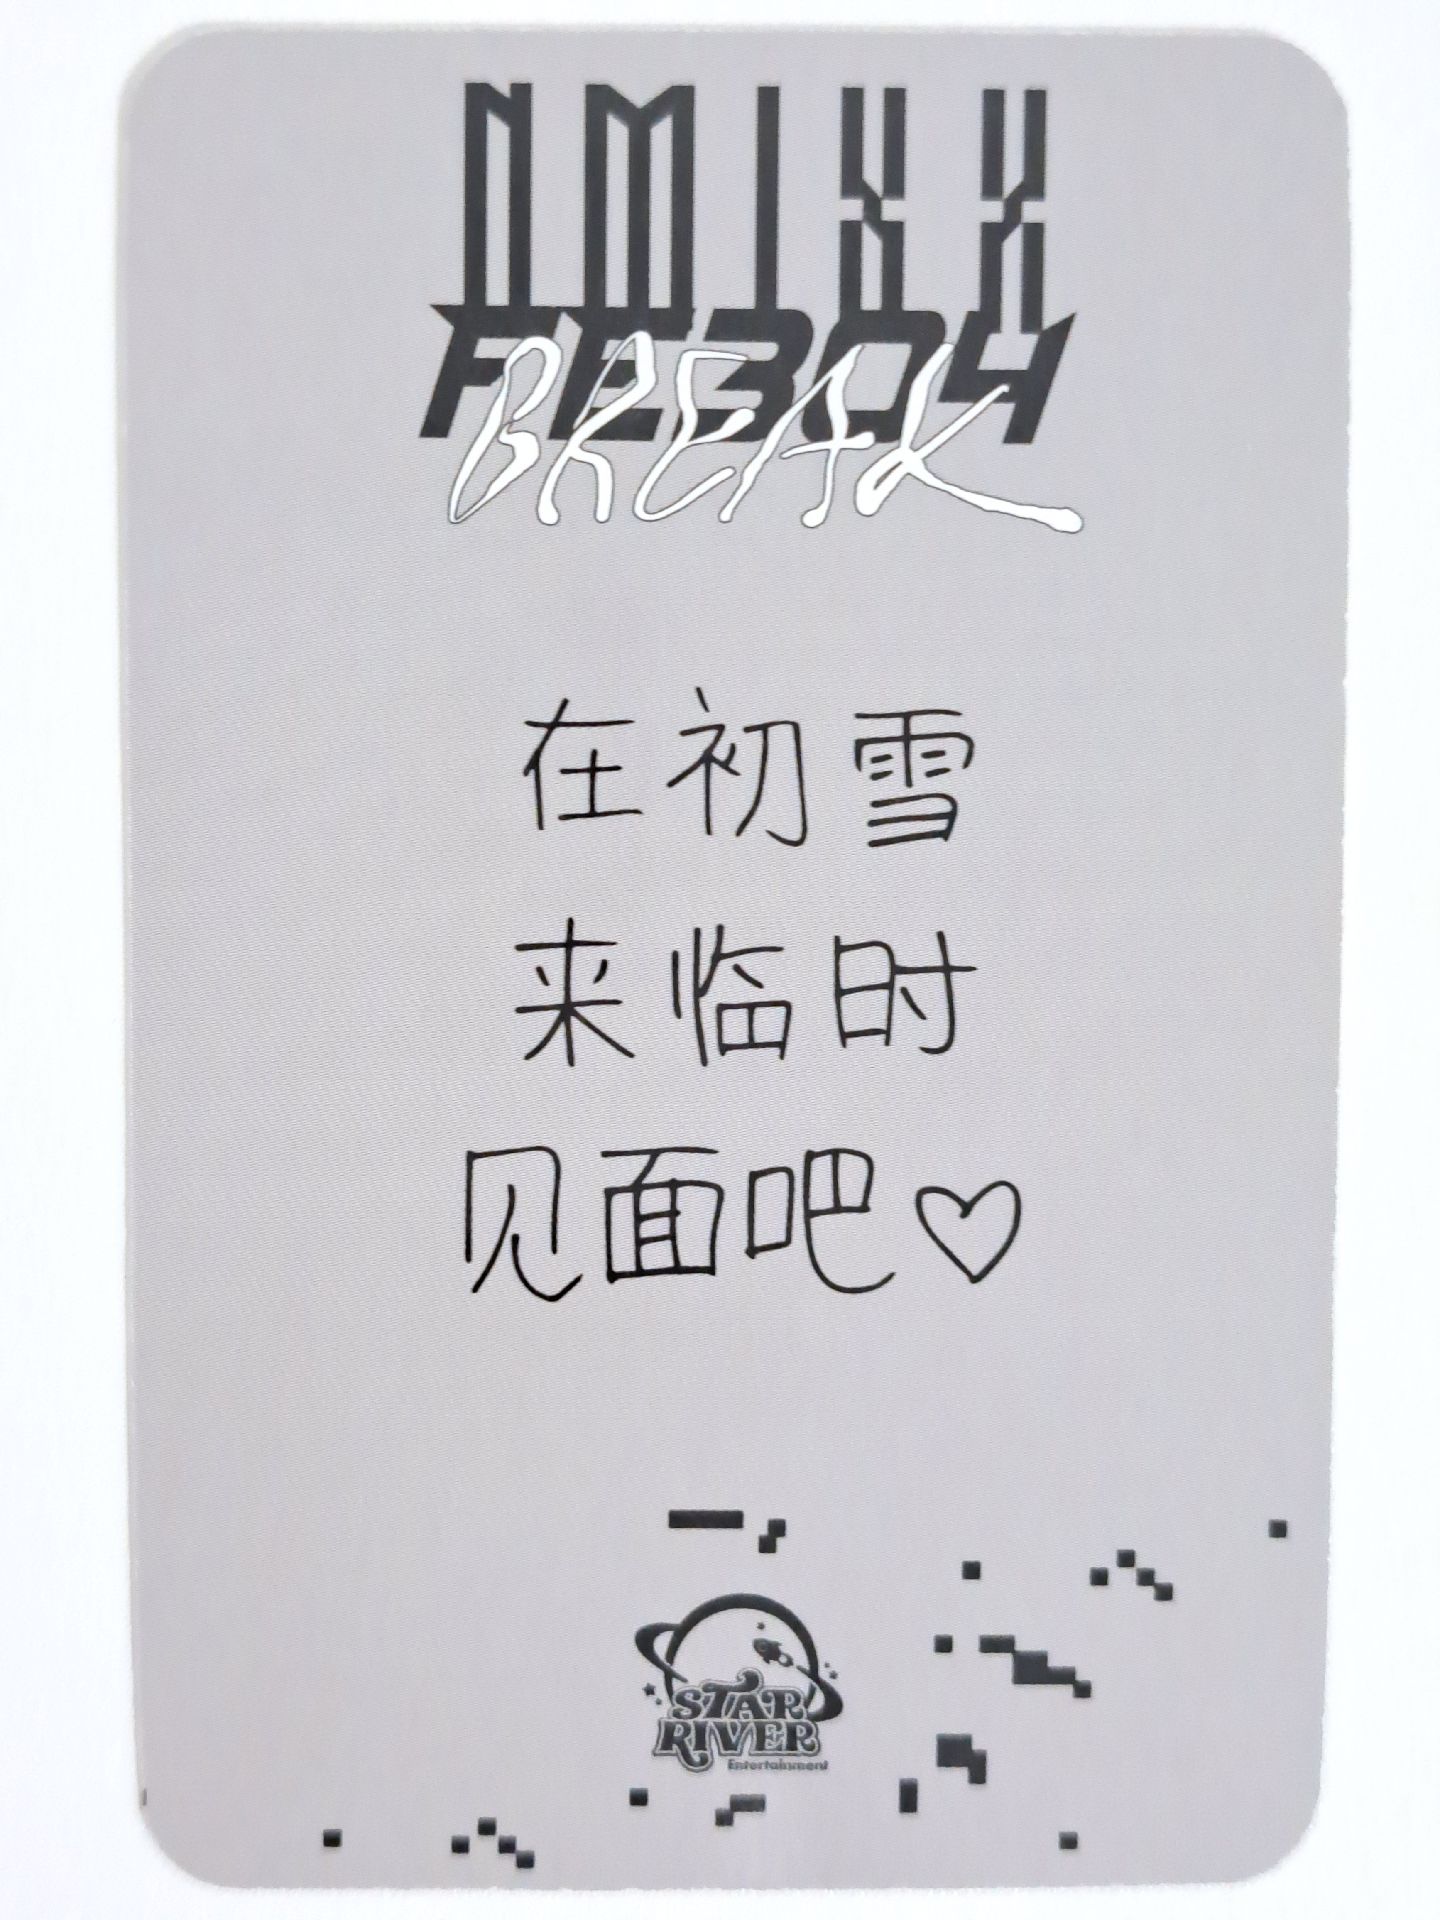 NMIXX
FE3O4
BREAK
在初雪
来临时
见面吧♡
STAR
RIVER
Entertainment